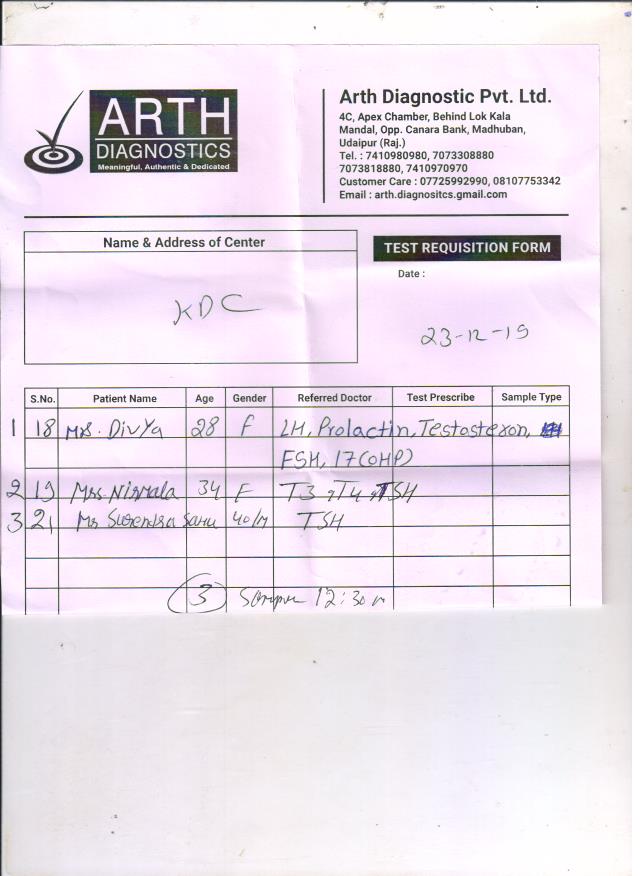 ARTH
DIAGNOSTICS
Meaningful, Authentic & Dedicated
Arth Diagnostic Pvt. Ltd.
4C, Apex Chamber, Behind Lok Kala
Mandal, Opp. Canara Bank, Madhuban,
Udaipur (Raj.)
Tel. : 7410980980, 7073308880
7073818880, 7410970970
Customer Care : 07725992990, 08107753342
Email : arth.diagnositcs.gmail.com
Name & Address of Center
TEST REQUISITION FORM
Date :
KDC
23-12-19
S.No. Patient Name Age Gender Referred Doctor Test Prescribe Sample Type
1 18 Mrs. Divya 28 F LH, Prolactin, Testosteron,
FSH, 17(OHP)
2 19 Mrs. Nirmala 34 F T3, T4, TSH
3 21 Mr Surendra Sahu 40/M TSH
3 12:30